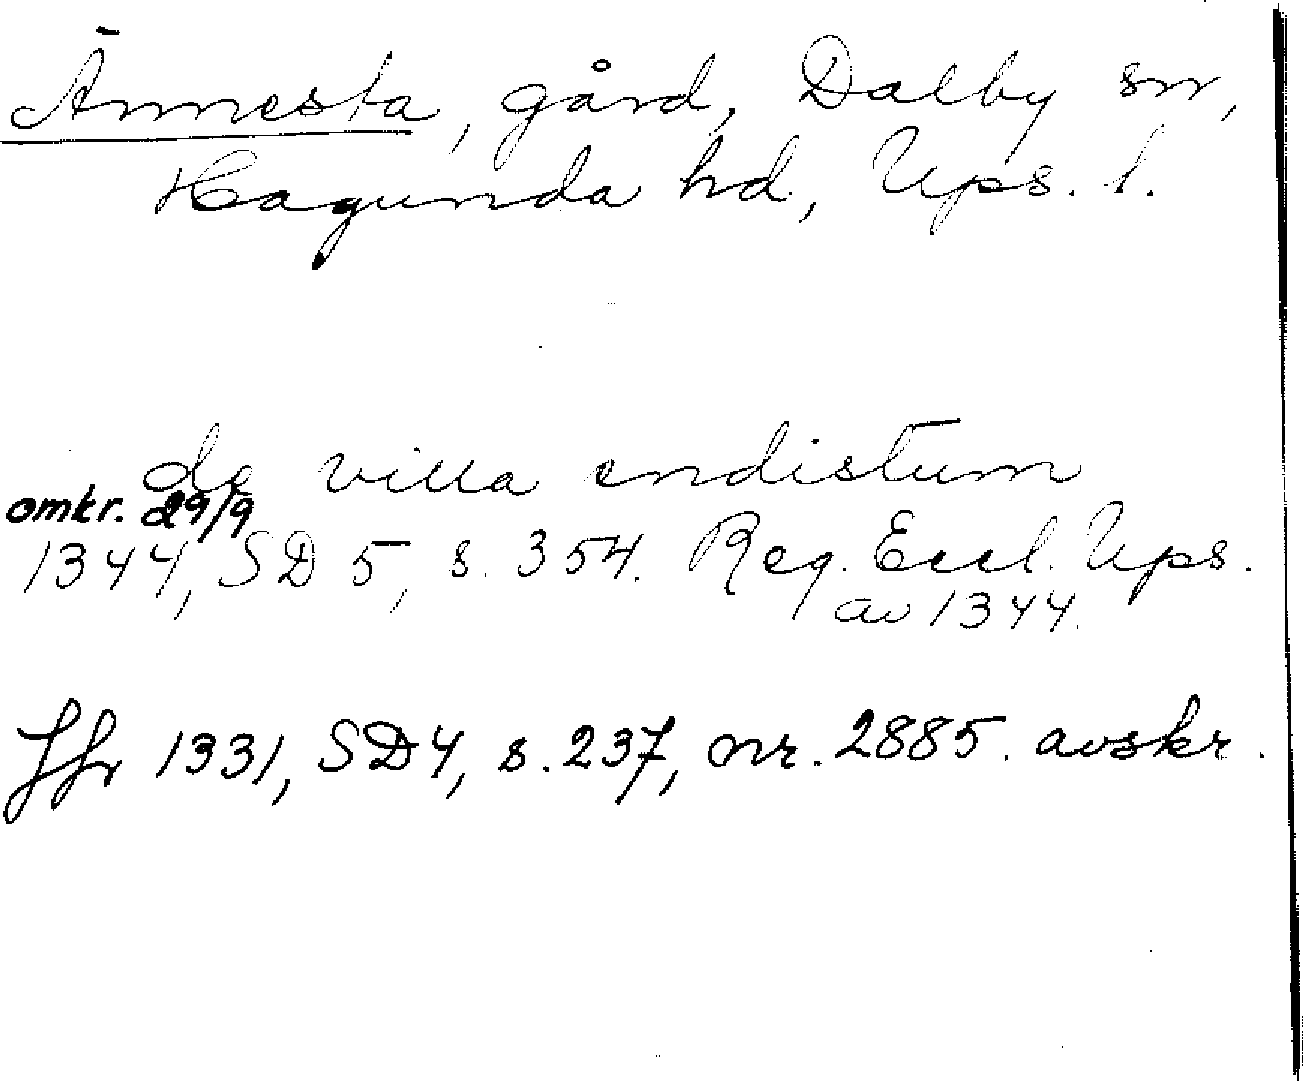 Ännesta, gård, Dalby sn,
Hagunda hd, Ups. l.
de villa endistum
omkr. 29/9
1344, SD 5, s. 354. Reg. Eccl. Ups.
av 1344.
Jfr 1331, SD 4, s. 237, nr. 2885. avskr.